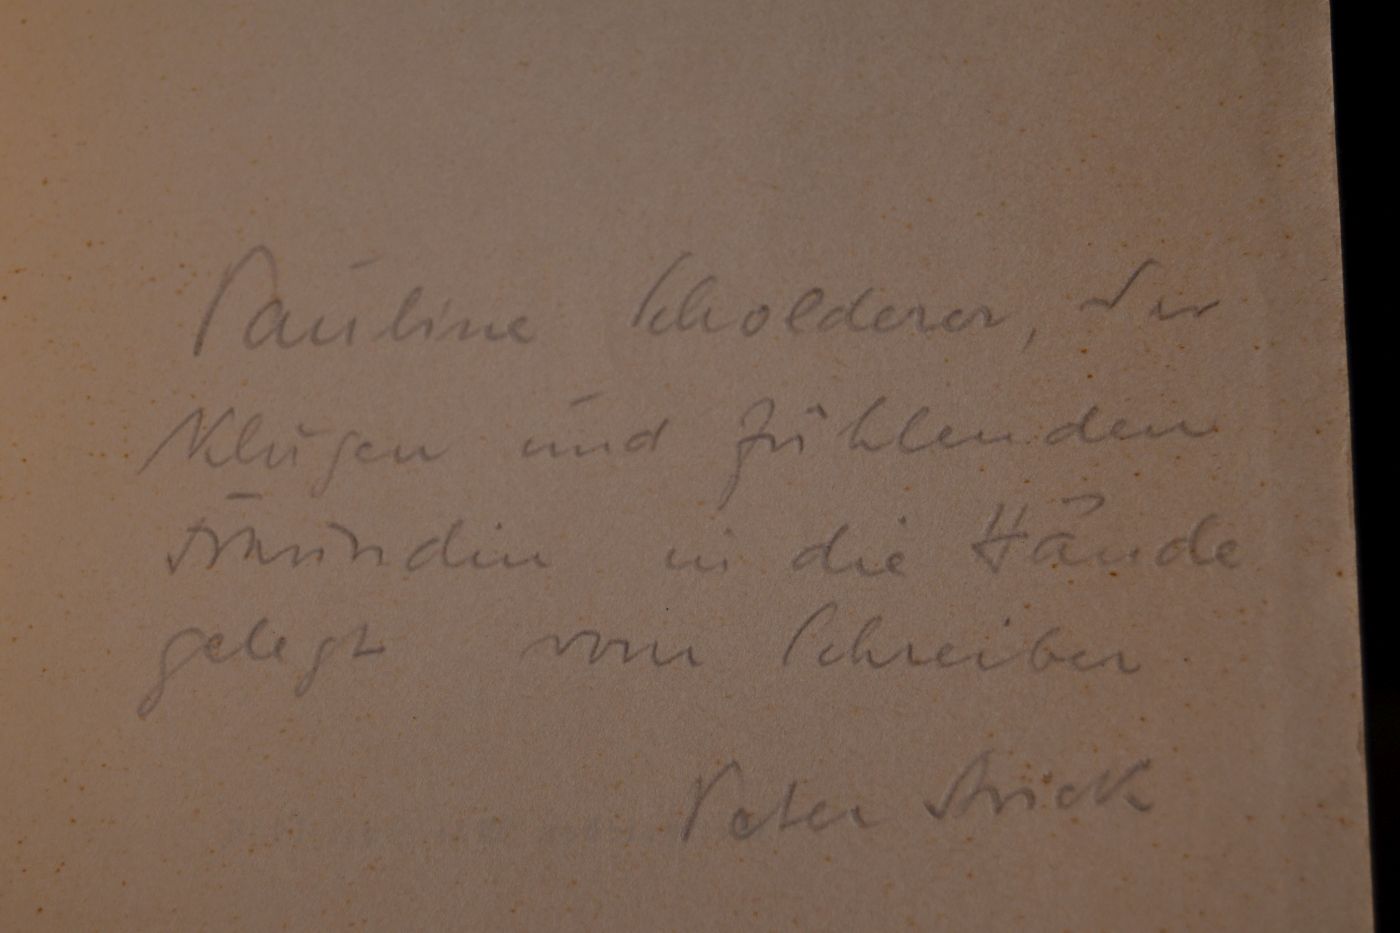 Pauline Scholderer, der
klugen und fühlenden
Freundin in die Hände
gelegt vom Schreiber
Peter Strick